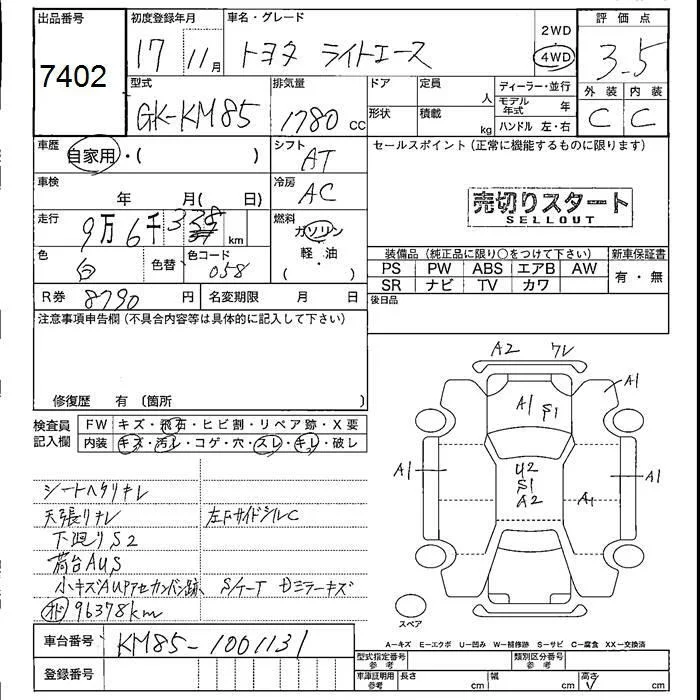 出品番号
7402
初度登録年月
17 11月
車名・グレード
トヨタ ライトエース
2WD
4WD
評価点
3.5
外装 内装
C C
型式
GK-KM85
排気量
1780 cc
ドア
形状
定員
人
積載
kg
ディーラー・並行
モデル年式 年
ハンドル 左・右
車歴
自家用・( )
シフト
AT
セールスポイント(正常に機能するものに限ります)
売切りスタート
SELLOUT
車検
年 月( 日)
冷房
AC
走行
9万6千 338 km
燃料
ガソリン
軽・油
( )
色
白
色替
色コード
058
装備品(純正品に限り○をつけて下さい)
新車保証書
PS PW ABS エアB AW
SR ナビ TV カワ
有・無
R券 8790 円
名変期限 月 日
後日品
注意事項申告欄(不具合内容等は具体的に記入して下さい)
修復歴 有(箇所 )
検査員記入欄
FW キズ・飛石・ヒビ割・リペア跡・X要
内装 キズ・汚レ・コゲ・穴・スレ・キレ・破レ
シートヘタリキレ
天張リキレ
左FサイドシルC
下廻りS2
荷台AUS
小キズAUアセカンバン跡、 S/ケース Dミラーキズ
オド 96378km
A2 ワレ
A1
A1 S1
A1
U2
S1
A2
A1
A1
スペア
A－キズ E－エクボ U－凹み W－補修跡 S－サビ C－腐食 XX－交換済
車台番号
KM85-1001131
登録番号
型式指定番号 参考
類別区分番号 参考
車庫証明用 参考
長さ cm
幅 cm
高さ cm